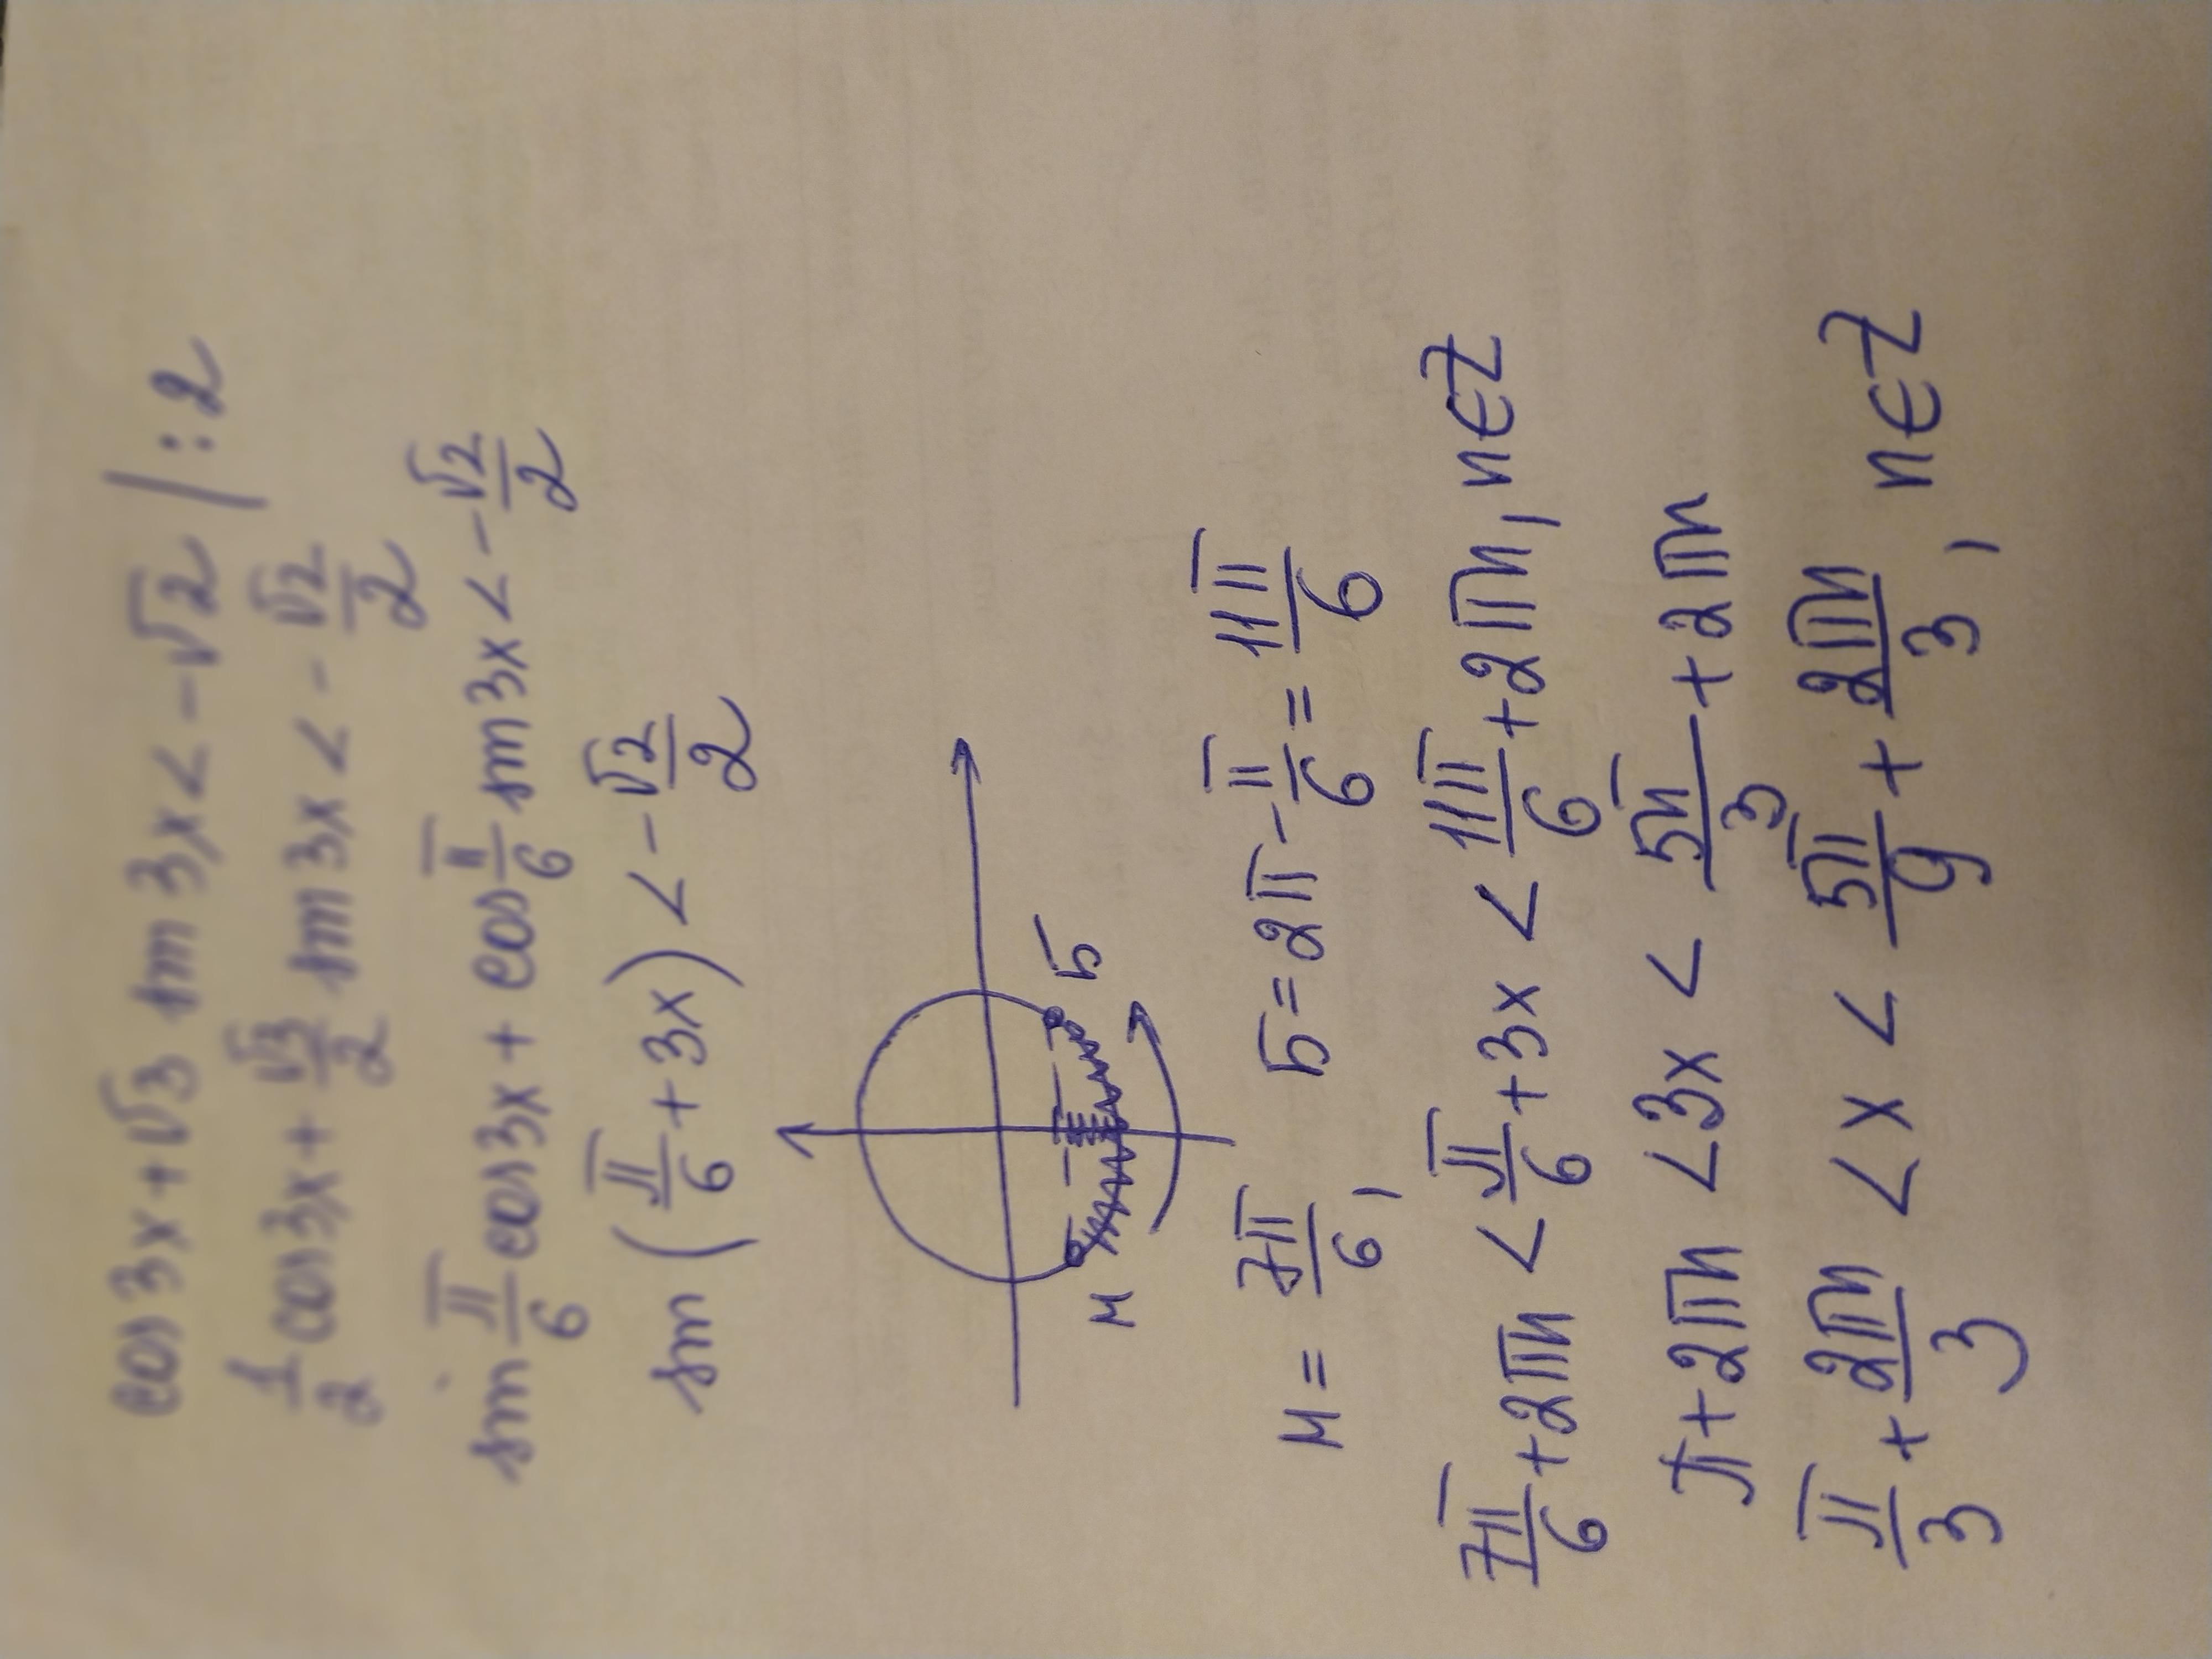 cos 3x + √3 sin 3x < -√2 | : 2
1/2 cos 3x + √3/2 sin 3x < - √2/2
sin π/6 cos 3x + cos π/6 sin 3x < - √2/2
sin (π/6 + 3x) < - √2/2
м Б
м = 7π/6, Б = 2π - π/6 = 11π/6
7π/6 + 2πn < π/6 + 3x < 11π/6 + 2πn, n∈Z
π + 2πn < 3x < 5π/3 + 2πn
π/3 + 2πn/3 < x < 5π/9 + 2πn/3, n∈Z